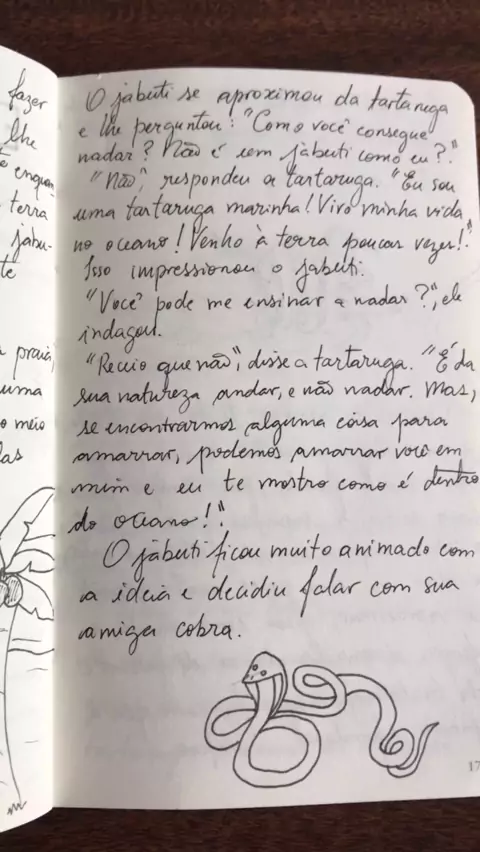 fazer
lhe
terra
jabu-
te
praia,
uma
o meio
las
O jabuti se aproximou da tartaruga
e lhe perguntou: "Como você consegue
nadar? Não é um jabuti como eu?".
"Não", respondeu a tartaruga. "Eu sou
uma tartaruga marinha! Vivo minha vida
no oceano! Venho à terra poucas vezes!".
Isso impressionou o jabuti.
"Você pode me ensinar a nadar?", ele
indagou.
"Receio que não", disse a tartaruga. "É da
sua natureza andar, e não nadar. Mas,
se encontrarmos alguma coisa para
amarrar, podemos amarrar você em
mim e eu te mostro como é dentro
do oceano!".
O jabuti ficou muito animado com
a ideia e decidiu falar com sua
amiga cobra.
17